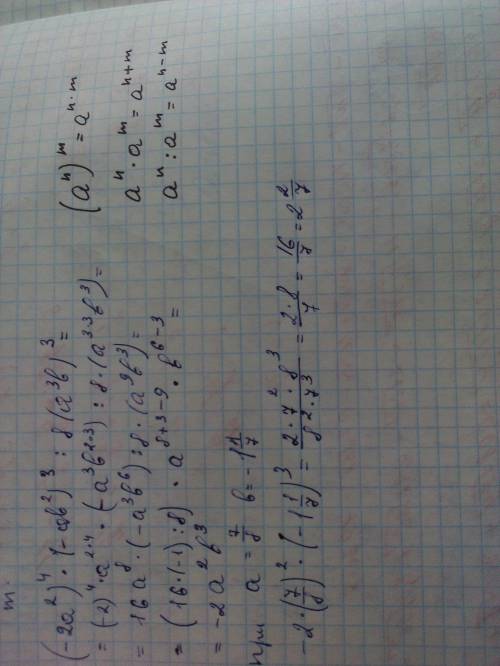 (-2a²)⁴ · (-ab²)³ : 8(a³b)³ =
= (-2)⁴ · a²·⁴ · (-a³b²·³) : 8 · (a³·³b³) =
= 16a⁸ · (-a³b⁶) : 8 · (a⁹b³) =
= (16·(-1) : 8) · a⁸⁺³⁻⁹ · b⁶⁻³ =
= -2a²b³
при a = 7/8 b = -1 1/7
-2 · (7/8)² · (-1 1/7)³ = 2·7²·8³/8²·7³ = 2·8/7 = 16/7 = 2 2/7
(aⁿ)ᵐ = aⁿ·ᵐ
aⁿ · aᵐ = aⁿ⁺ᵐ
aⁿ : aᵐ = aⁿ⁻ᵐ